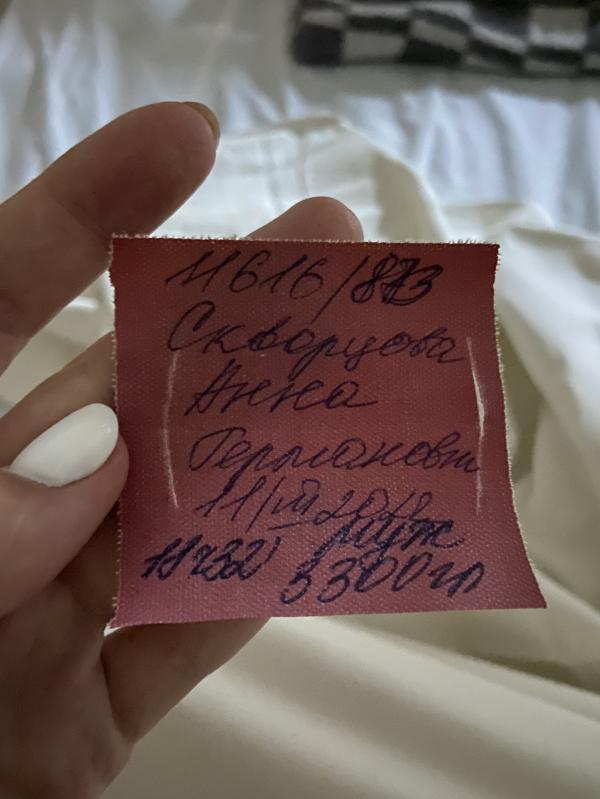 11616/873
Скворцова
Анна
Германовн
11/III
муж
3300гр